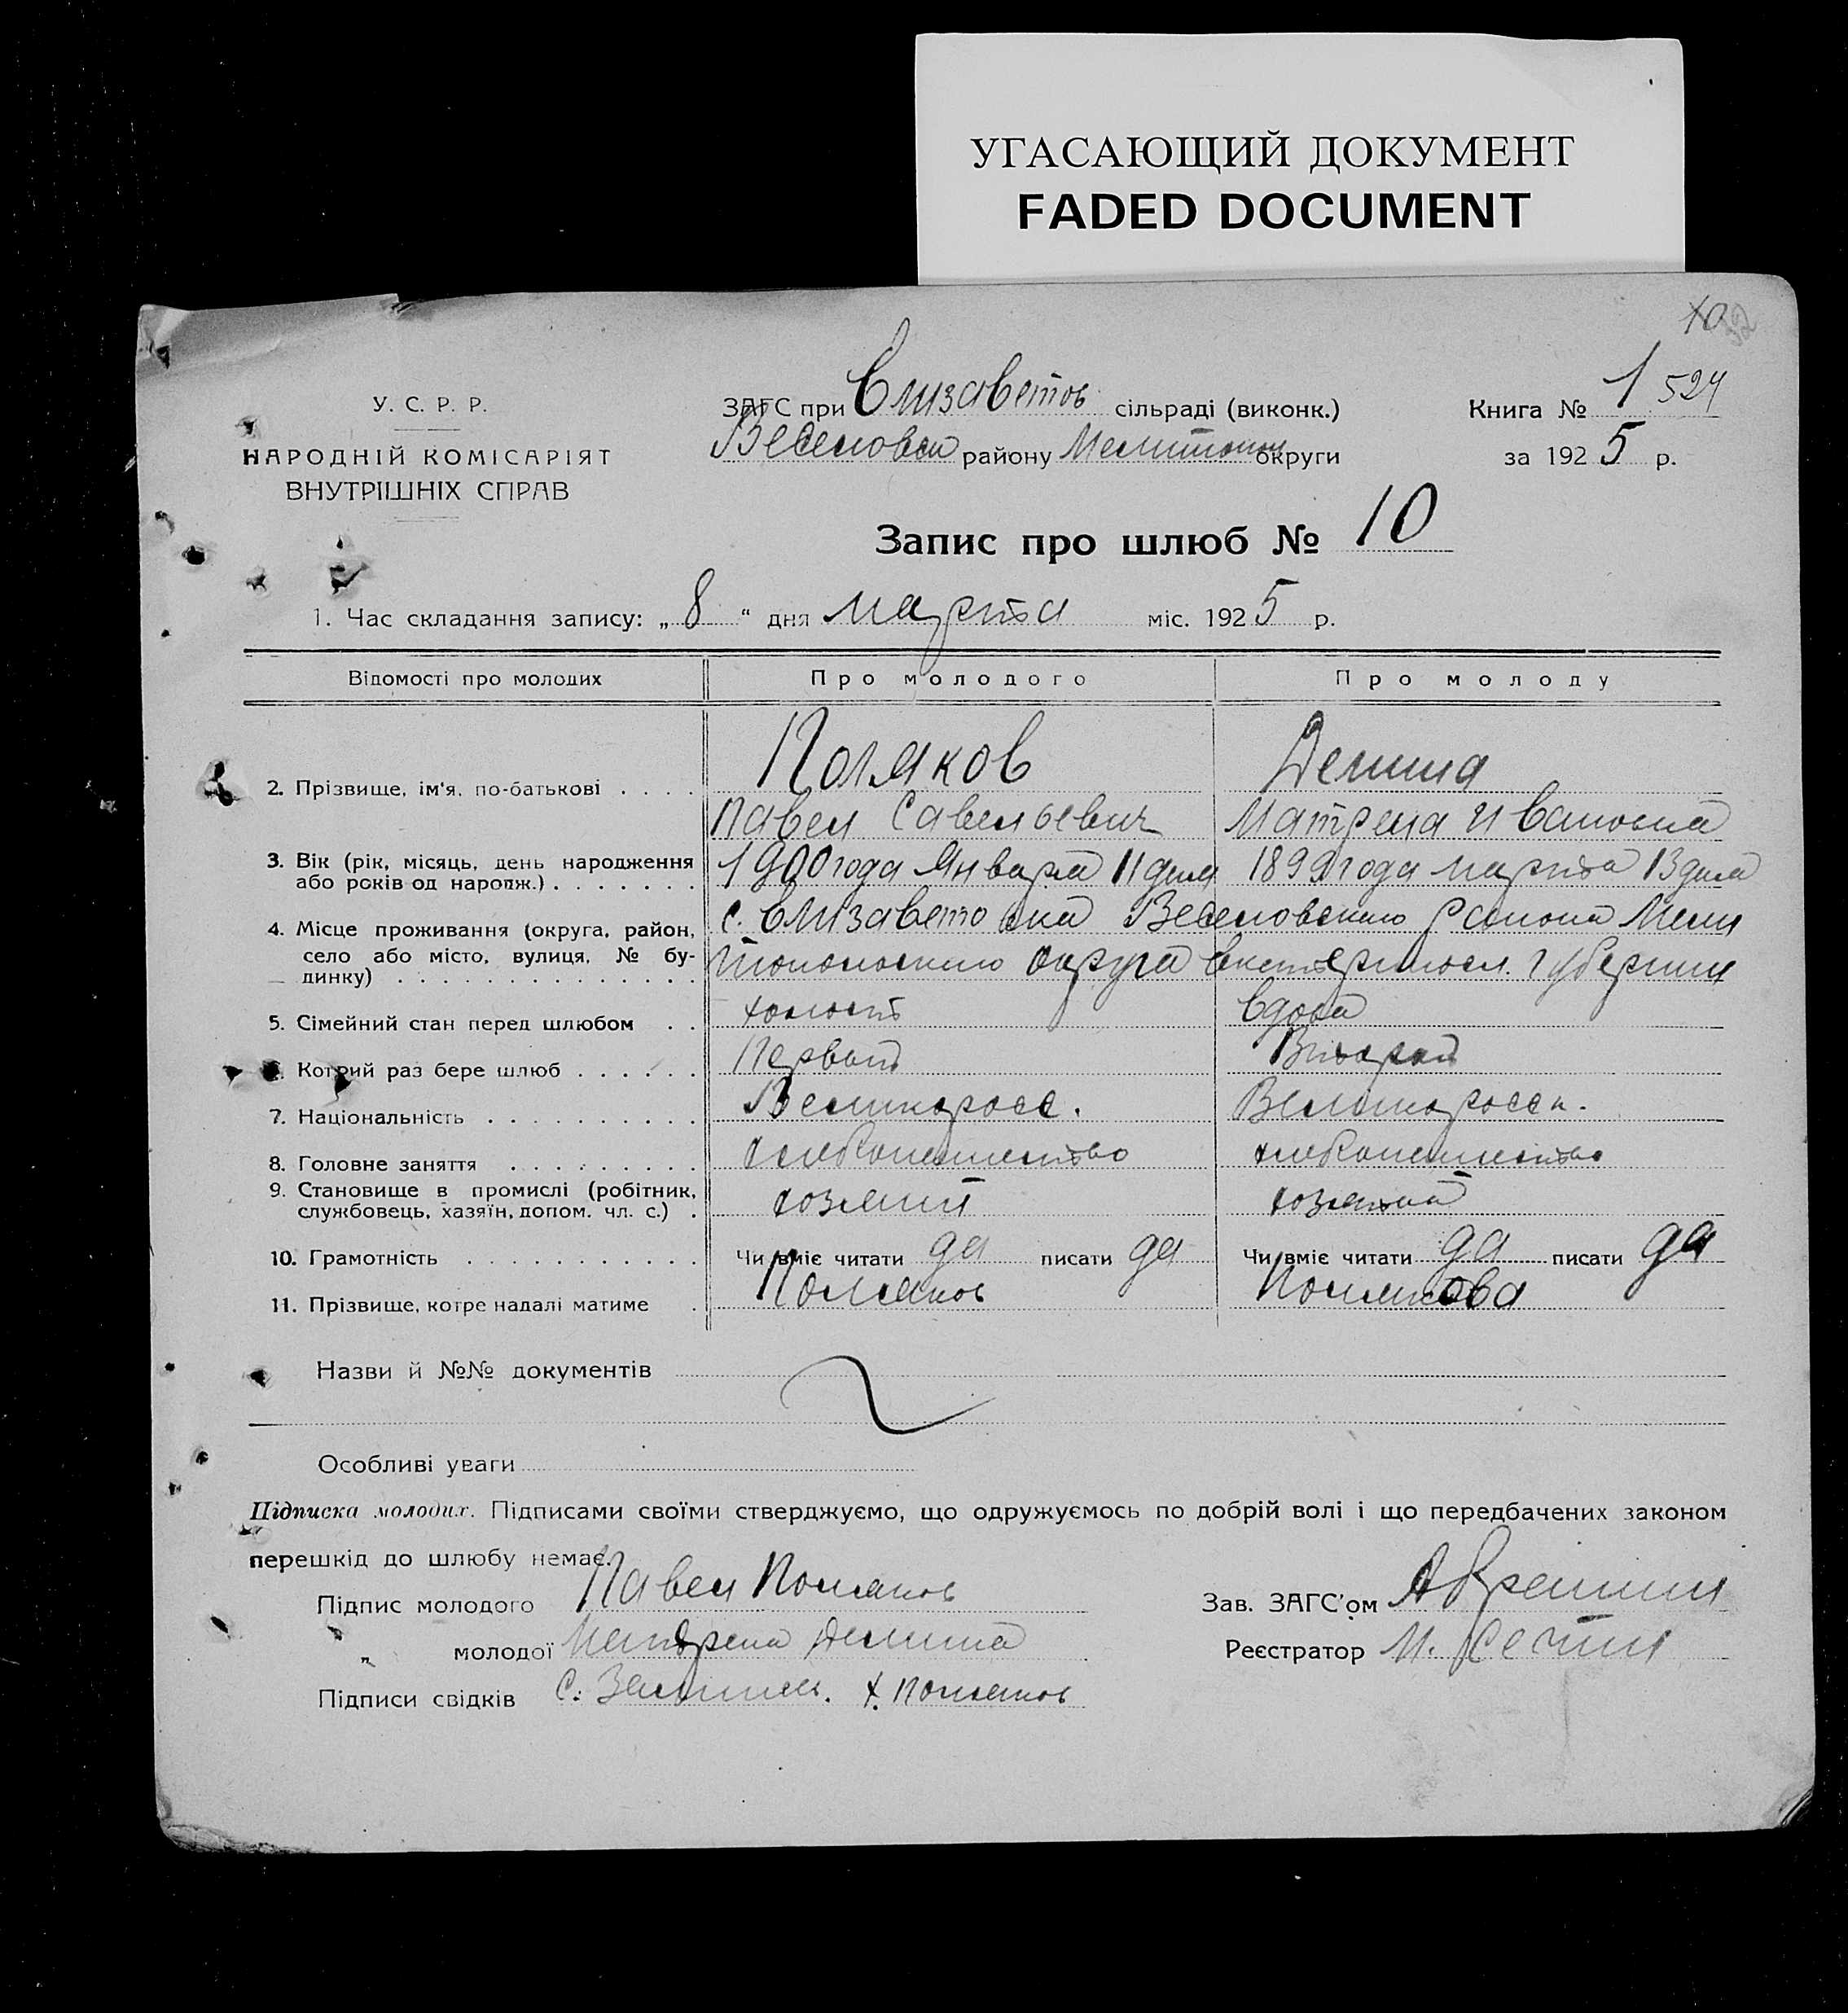 УГАСАЮЩИЙ ДОКУМЕНТ
FADED DOCUMENT
10
У. С. Р. Р.
НАРОДНІЙ КОМІСАРІЯТ
ВНУТРІШНІХ СПРАВ
ЗАГС при Елизаветов сільраді (виконк.)
Веселовск району Мелитопол округи
Книга № 1 524
за 1925 р.
Запис про шлюб № 10
1. Час складання запису: „ 8 “ дня марта міс. 1925 р.
Відомості про молодих Про молодого Про молоду
2. Прізвище, ім'я, по-батькові Поляков Демина
Павел Савельевич Матрена Ивановна
3. Вік (рік, місяць, день народження
або років од народж.) 1900 года Января 11 дня 1899 года марта 13 дня
4. Місце проживання (округа, район,
село або місто, вулиця, № бу-
динку)
с. Елизаветовка Веселовского района Мели
топольского округа Екатериносл. губернии
5. Сімейний стан перед шлюбом холост вдова
6. Котрий раз бере шлюб Первый Второй
7. Національність Великоросс. Великоросск.
8. Головне заняття хлебопашество хлебопашество
9. Становище в промислі (робітник,
службовець, хазяїн, допом. чл. с.) хозяин хозяйка
10. Грамотність Чи вміє читати да писати да Чи вміє читати да писати да
11. Прізвище, котре надалі матиме Поляков Полякова
Назви й №№ документів
Особливі уваги
Підписка молодих. Підписами своїми стверджуємо, що одружуємось по добрій волі і що передбачених законом
перешкід до шлюбу немає.
Підпис молодого Павел Поляков
„ молодої Матрена Демина
Підписи свідків С. Х. Поляков
Зав. ЗАГС'ом
Реєстратор М.